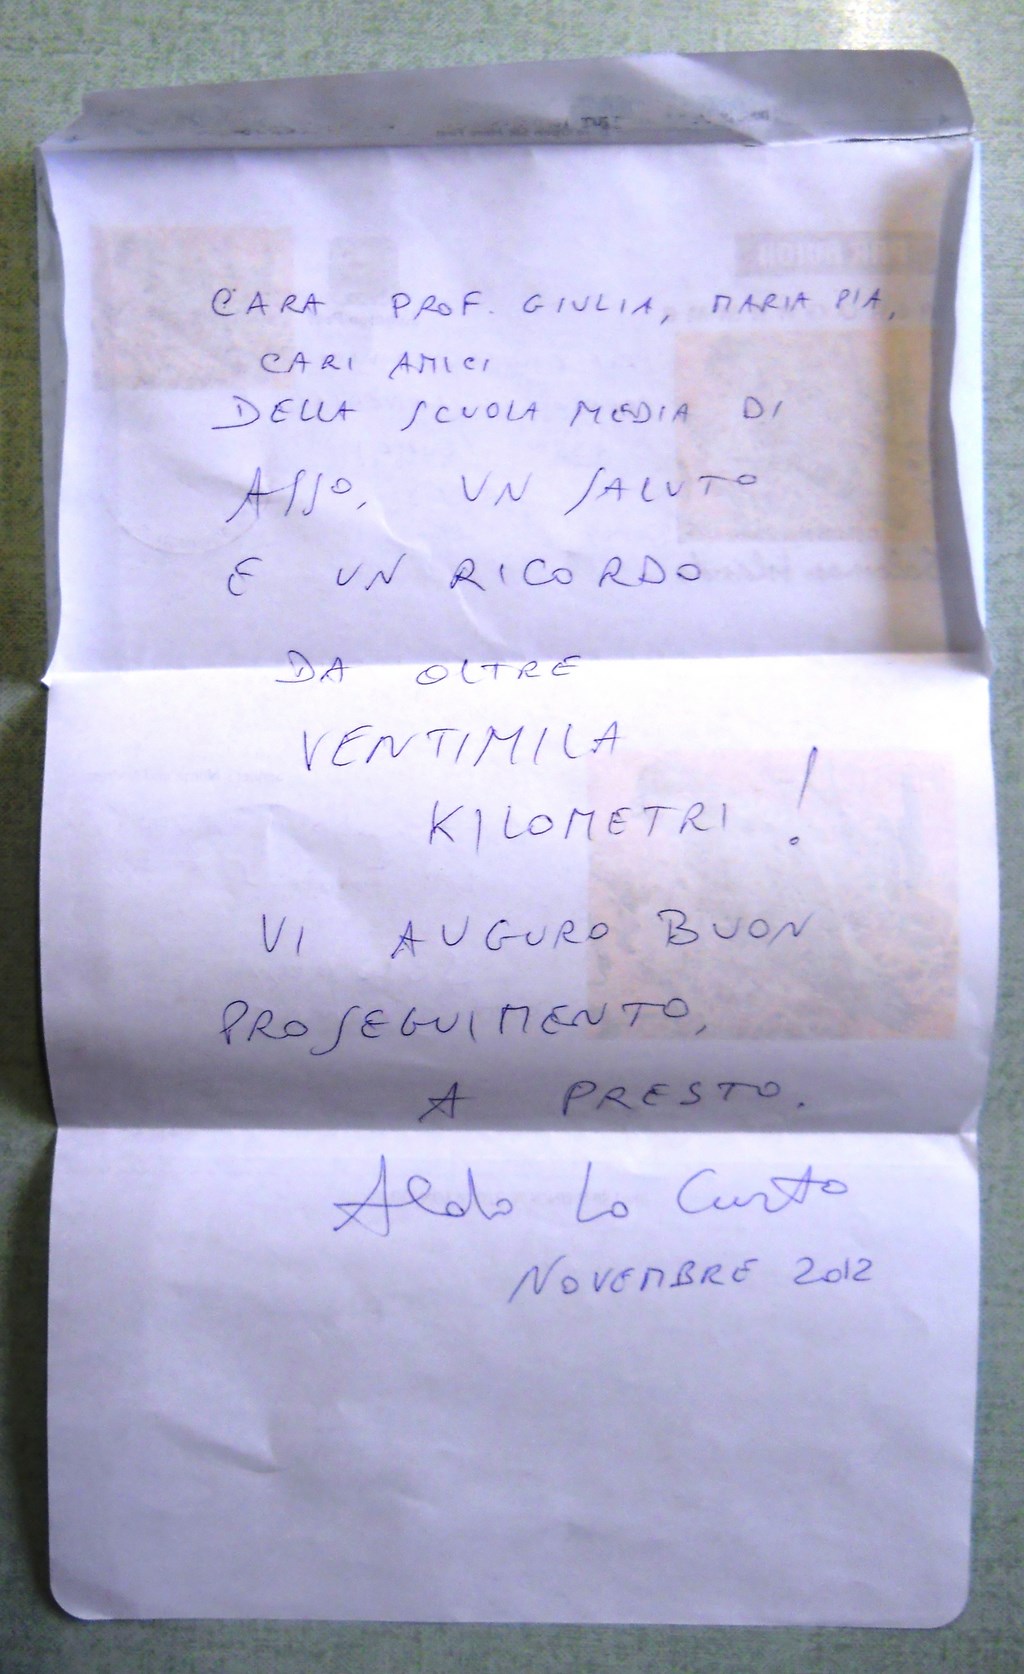 CARA PROF. GIULIA, MARIA PIA,
CARI AMICI
DELLA SCUOLA MEDIA DI
ASSO, UN SALUTO
E UN RICORDO
DA OLTRE
VENTIMILA
KILOMETRI!
VI AUGURO BUON
PROSEGUIMENTO,
A PRESTO.
Aldo Lo Curto
NOVEMBRE 2012